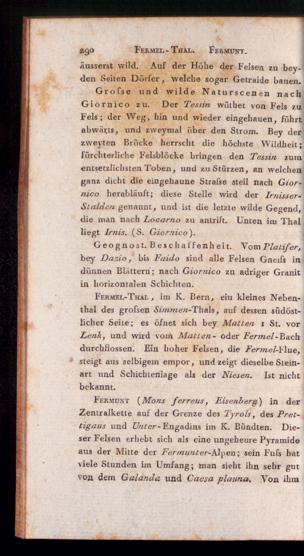 290 FERMEL-THAL. FERMUNT.
äusserst wild. Auf der Höhe der Felsen zu bey-
den Seiten Dörfer, welche sogar Getraide bauen.
Grofse und wilde Naturscenen nach
Giornico zu. Der Tessin wüthet von Fels zu
Fels; der Weg, hin und wieder eingehauen, führt
abwärts, und zweymal über den Strom. Bey der
zweyten Brücke herrscht die höchste Wildheit;
fürchterliche Felsblöcke bringen den Tessin zum
entsetzlichsten Toben, und zu Stürzen, an welchen
ganz dicht die eingehaune Strafse steil nach Gior-
nico herabläuft; diese Stelle wird der Irnisser-
Stalden genannt, und ist die letzte wilde Gegend,
die man nach Locarno zu antrift. Unten im Thal
liegt Irnis. (S. Giornico).
Geognost. Beschaffenheit. Vom Platifer,
bey Dazio, bis Faido sind alle Felsen Gneifs in
dünnen Blättern; nach Giornico zu adriger Granit
in horizontalen Schichten.
FERMEL-THAL, im K. Bern, ein kleines Neben-
thal des grofsen Simmen-Thals, auf dessen südöst-
licher Seite; es öfnet sich bey Matten 1 St. vor
Lenk, und wird vom Matten- oder Fermel-Bach
durchflossen. Ein hoher Felsen, die Fermel-Flue,
steigt aus selbigem empor, und zeigt dieselbe Stein-
art und Schichtenlage als der Niesen. Ist nicht
bekannt.
FERMUNT (Mons ferreus, Eisenberg) in der
Zentralkette auf der Grenze des Tyrols, des Pret-
tigaus und Unter-Engadins im K. Bündten. Die-
ser Felsen erhebt sich als eine ungeheure Pyramide
aus der Mitte der Fermunter-Alpen; sein Fufs hat
viele Stunden im Umfang; man sieht ihn sehr gut
von dem Galanda und Caesa plauna. Von ihm